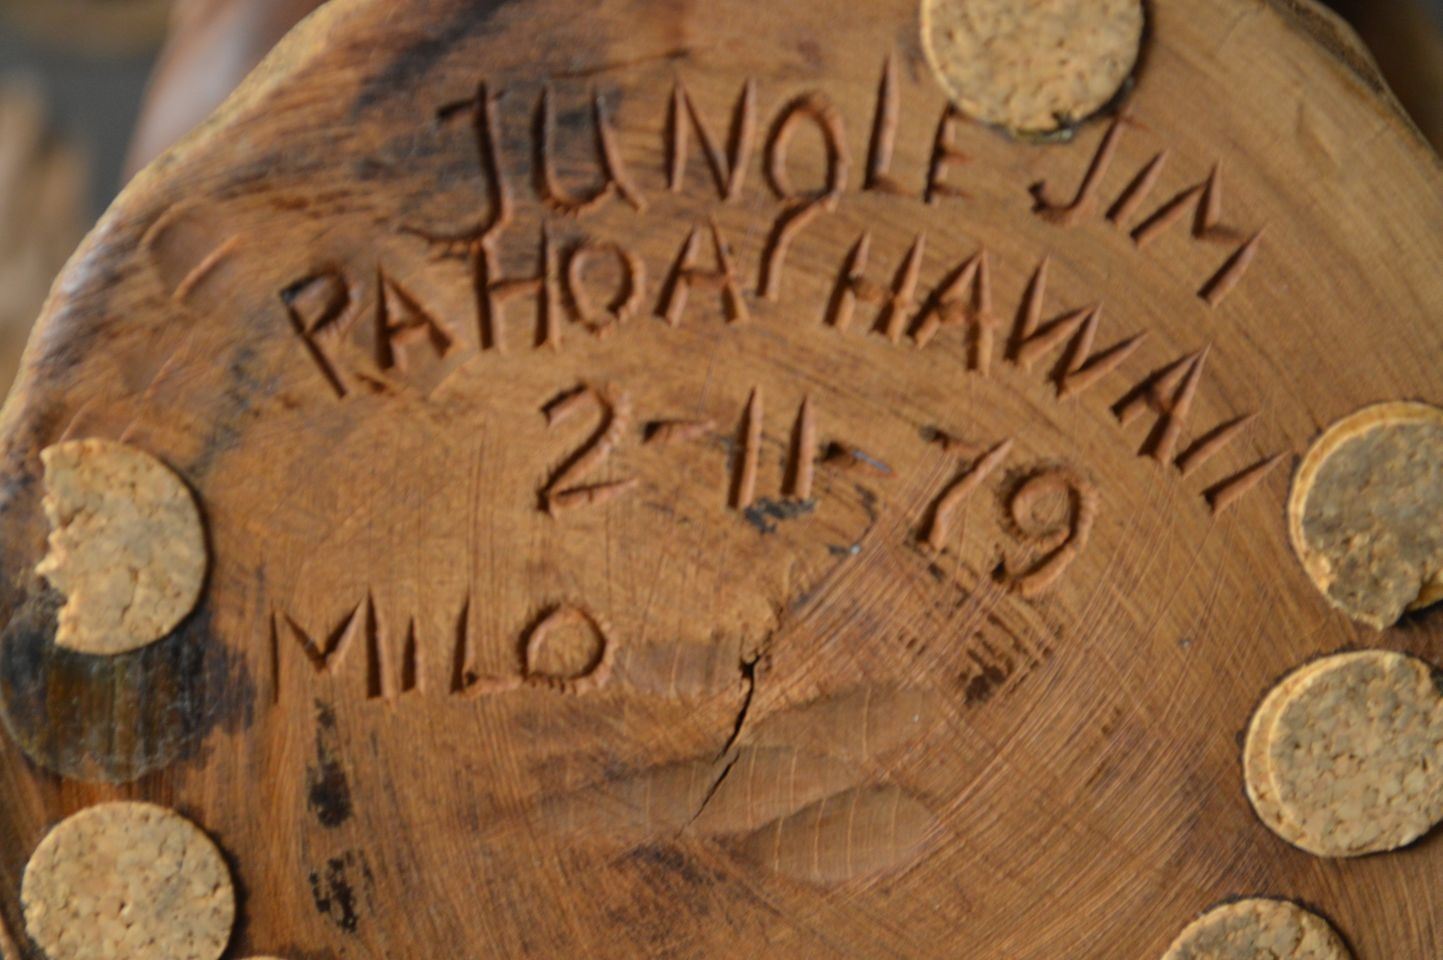 JUNGLE JIM
PAHOA HAWAII
2-11-79
MILO